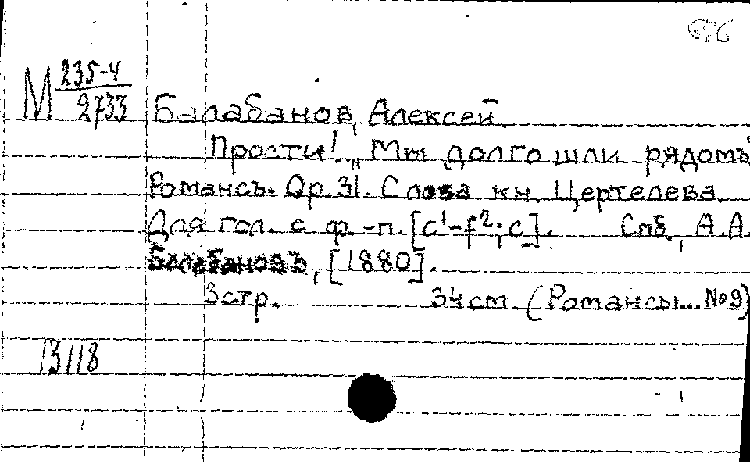 М 235-4
2733
Балабанов, Алексей.
Прости! „Мы долго шли рядомъ
Романсъ. Op. 31. Слова кн. Цертелева
Для гол. с ф.-п. [c¹-f²; c]. Спб., А.А.
Балабановъ, [1880].
3стр. 34см. (Романсы... №9)
13118